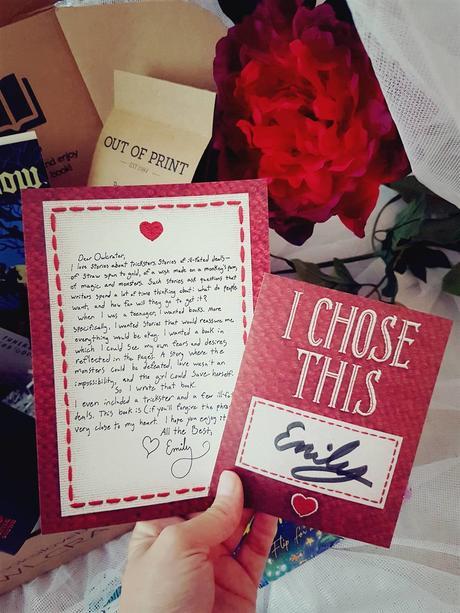 and enjoy
book!
OUT OF PRINT
Dear Owlcrater,
I love stories about tricksters. Stories of ill-fated deals—
of straw spun to gold, of a wish made on a monkey's paw,
of magic, and monsters. Such stories ask questions that
writers spend a lot of time thinking about: what do people
want, and how far will they go to get it?
When I was a teenager, I wanted books. More
specifically, I wanted stories that would reassure me
everything would be okay. I wanted a book in
which I could see my own fears and desires
reflected in the pages. A story where the
monsters could be defeated, love wasn't an
impossibility, and the girl could save herself.
So I wrote that book.
I even included a trickster and a few ill-fa
deals. This book is (if you'll forgive the phra
very close to my heart. I hope you enjoy it
All the Best,
Emily
I CHOSE
THIS
Emily
Flip for